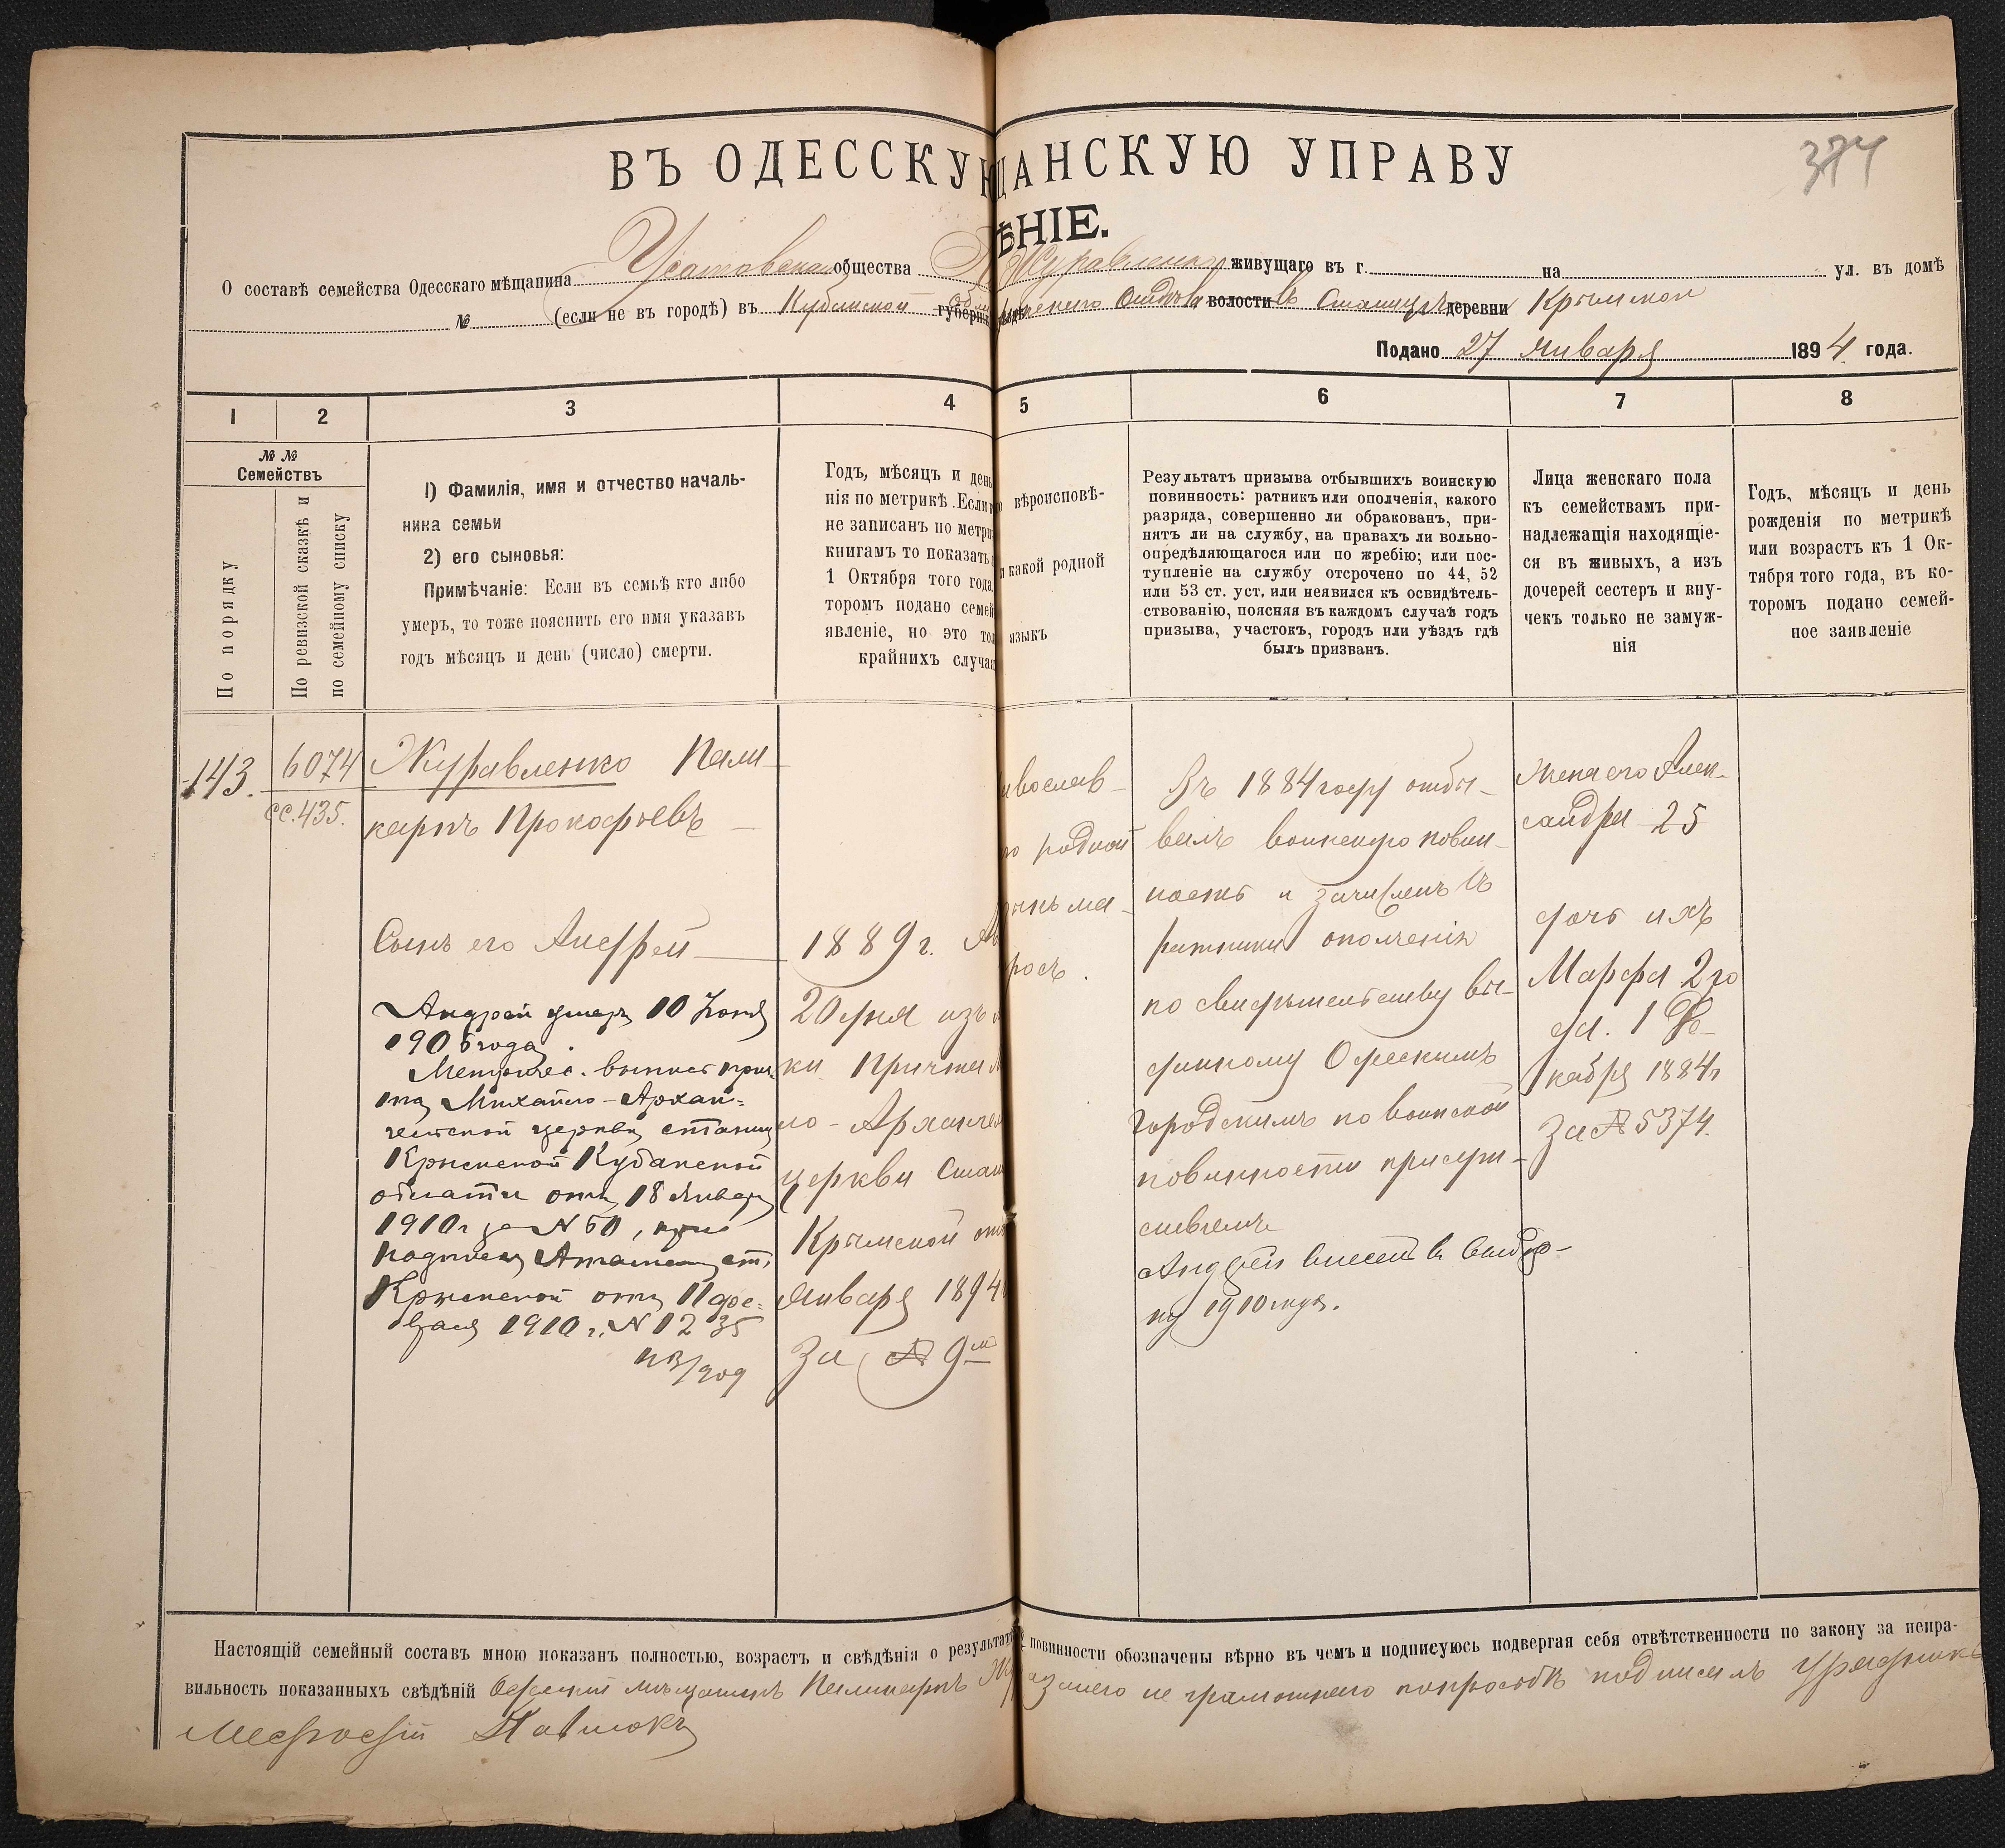 ВЪ ОДЕССКУЮ ЩАНСКУЮ УПРАВУ
374
ѢНІЕ.
О составѣ семейства Одесскаго мѣщанина Усатовскаго общества Журавленко живущаго въ г. на ул. въ домѣ
№ (если не въ городѣ) въ Кубанской губерн отдѣла волости въ Станицѣ деревни Крымской
Подано 27 Января 1894 года.
1 2 3 4 5 6 7 8
№ №
Семействъ
По порядку
По ревизской сказкѣ и
по семейному списку
1) Фамилія, имя и отчество началь-
ника семьи
2) его сыновья:
Примѣчаніе: Если въ семьѣ кто либо
умеръ, то тоже пояснить его имя указавъ
годъ мѣсяцъ и день (число) смерти.
Годъ, мѣсяцъ и день
нія по метрикѣ. Если
не записанъ по метри
книгамъ то показать
1 Октября того года
торомъ подано семей
явленіе, но это то
крайнихъ случа
вѣроисповѣ-
и какой родной
языкъ
Результатъ призыва отбывшихъ воинскую
повинность: ратникъ или ополченія, какого
разряда, совершенно ли обракованъ, при-
нятъ ли на службу, на правахъ ли вольно-
опредѣляющагося или по жребію; или пос-
тупленіе на службу отсрочено по 44, 52
или 53 ст. уст, или неявился къ освидѣтель-
ствованію, поясняя въ каждомъ случаѣ годъ
призыва, участокъ, городъ или уѣздъ гдѣ
былъ призванъ.
Лица женскаго пола
къ семействамъ при-
надлежащія находящіе-
ся въ живыхъ, а изъ
дочерей сестеръ и вну-
чекъ только не замуж-
нія
Годъ, мѣсяцъ и день
рожденія по метрикѣ
или возрастъ къ 1 Ок-
тября того года, въ ко-
торомъ подано семей-
ное заявленіе
143.
6074
сс. 435.
Журавленко Поли-
карпъ Прокофьевъ
Сынъ его Андрей
Андрей умеръ 10 Іюня
1906 года.
Метричес. выпись прич-
та Михайло-Архан-
гельской церкви станиц
Крымской Кубанской
области отъ 18 Января
1910 г за № 60, при
надписи Атамана ст.
Крымской отъ 11 фе-
враля 1910 г. № 1235
1889 г.
20 дня изъ
ки Причта
ло-Арханге
церкви Стан
Крымской от
Января 1894
За № 9м
авослав-
родной
языкъ ма-
рос.
Въ 1884 году отбы-
валъ воинскую повин-
ность и зачисленъ въ
ратники ополченія
по свидѣтельству вы-
данному Одесскимъ
Городскимъ по воинской
повинности присут-
ствіемъ
Андрей внесенъ въ выбор-
ку 1910 года.
Жена его Алек-
сандра 25
дочь ихъ
Марфа 2го
рд. 1 Де-
кабря 1884 г
За № 5374.
Настоящій семейный составъ мною показанъ полностью, возрастъ и свѣдѣнія о результатѣ повинности обозначены вѣрно въ чемъ и подписуюсь подвергая себя отвѣтственности по закону за непра-
вильность показанныхъ свѣдѣній Одесскій мѣщанинъ Поликарпъ Жур а за него не грамотнаго по просьбѣ подписалъ Урядникъ
Мефодій Павлюкъ